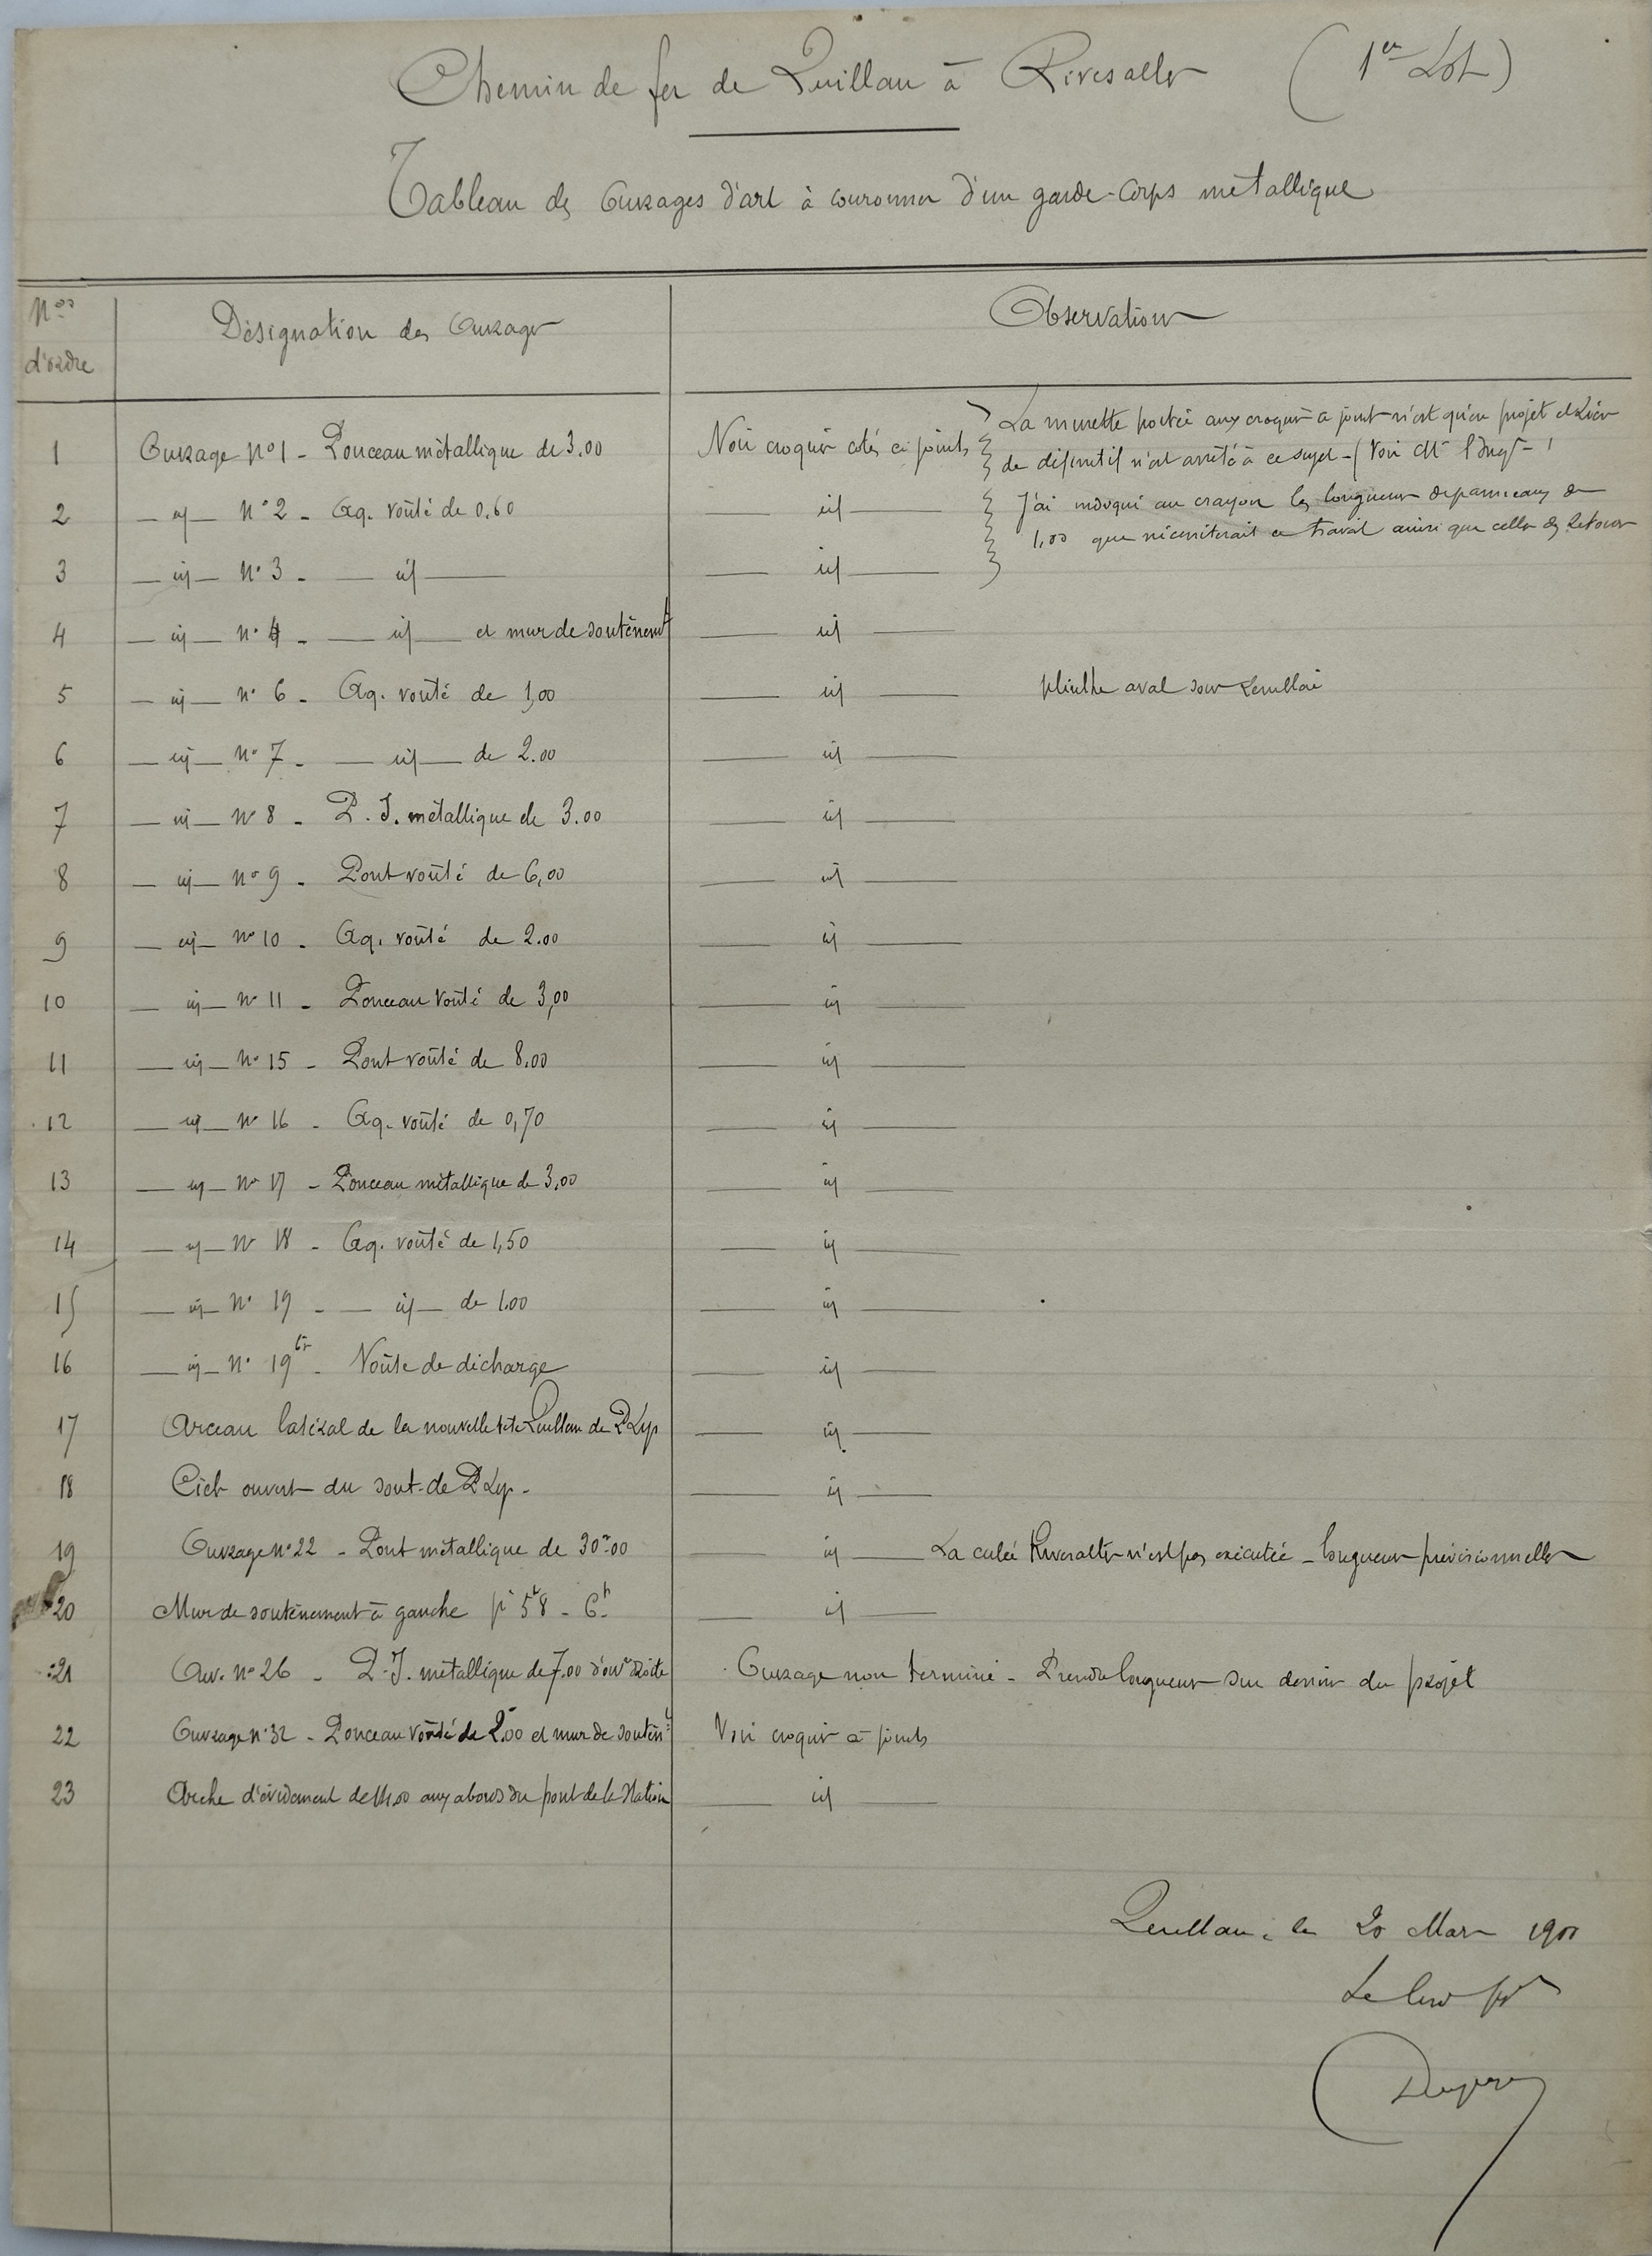 Chemin de fer de Quillan à Rivesaltes (1er Lot)
Tableau des Ouvrages d'art à couronner d'un garde-corps métallique
Nos d'ordre | Désignation des Ouvrages | Observations
1 | Ouvrage No 1 - Ponceau métallique de 3.00 | Voir croquis cotés ci joints
La murette portée aux croquis ci joints n'est qu'en projet et rien
de définitif n'est arrêté à ce sujet - (Voir Mr l'Ingr - )
2 | — id — No 2 - Aq. voûté de 0.60 | — id —
J'ai indiqué au crayon les longueurs de panneaux de
1,00 que nécessiterait ce travail ainsi que celles des retours
3 | — id — No 3 - — id — | — id —
4 | — id — No 4 - — id — et mur de soutènemt | — id —
5 | — id — No 6 - Aq. voûté de 1,00 | — id — plinthe aval sous remblai
6 | — id — No 7 - — id — de 2.00 | — id —
7 | — id — No 8 - P. I. métallique de 3.00 | — id —
8 | — id — No 9 - Pont voûté de 6,00 | — id —
9 | — id — No 10 - Aq. voûté de 2.00 | — id —
10 | — id — No 11 - Ponceau voûté de 3,00 | — id —
11 | — id — No 15 - Pont voûté de 8.00 | — id —
12 | — id — No 16 - Aq. voûté de 0,70 | — id —
13 | — id — No 17 - Ponceau métallique de 3,00 | — id —
14 | — id — No 18 - Aq. voûté de 1,50 | — id —
15 | — id — No 19 - — id — de 1.00 | — id —
16 | — id — No 19 bis - Voûte de décharge | — id —
17 | Arceau latéral de la nouvelle tête Quillan de P. Lys | — id —
18 | Ciel ouvert du sout. de P. Lys - | — id —
19 | Ouvrage No 22 - Pont métallique de 30m00 | — id — La culée Rivesaltes n'est pas exécutée - longueurs prévisionnelles
20 | Mur de soutènement à gauche 5k8 - 6k | — id —
21 | Ouv. No 26 - P. I. métallique de 7.00 d'ouvre droite | Ouvrage non terminé - Prendre longueurs sur dessins du projet
22 | Ouvrage No 32 - Ponceau voûté de 2m00 et mur de soutènt | Voir croquis ci joints
23 | Arche d'évidement de 4.00 aux abords du pont de la Station | — id —
Quillan, le 20 Mars 1900